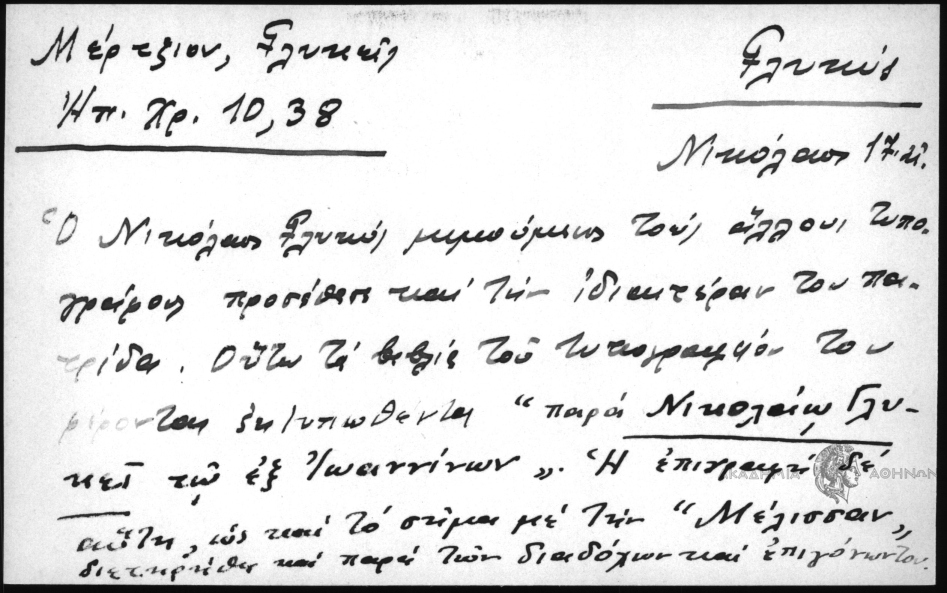 Μέρτζιου, Γλυκεῖς
Ἠπ. Χρ. 10, 38
Γλυκύς
Νικόλαος 17. αἰ.
Ὁ Νικόλαος Γλυκύς μιμούμενος τούς ἄλλους τυπο-
γράφους προσέθεσε καί τήν ἰδιαιτέραν του πα-
τρίδα. Οὕτω τά βιβλία τοῦ τυπογραφείου του
φέρονται ἐκτυπωθέντα "παρά Νικολάῳ Γλυ-
κεῖ τῷ ἐξ Ἰωαννίνων„. Ἡ ἐπιγραφή δέ
αὕτη, ὡς καί τό σῆμα μέ τήν "Μέλισσαν„
διετηρήθη καί παρά τῶν διαδόχων καί ἐπιγόνων του.
ΑΚΑΔΗΜΙΑ ΑΘΗΝΩΝ